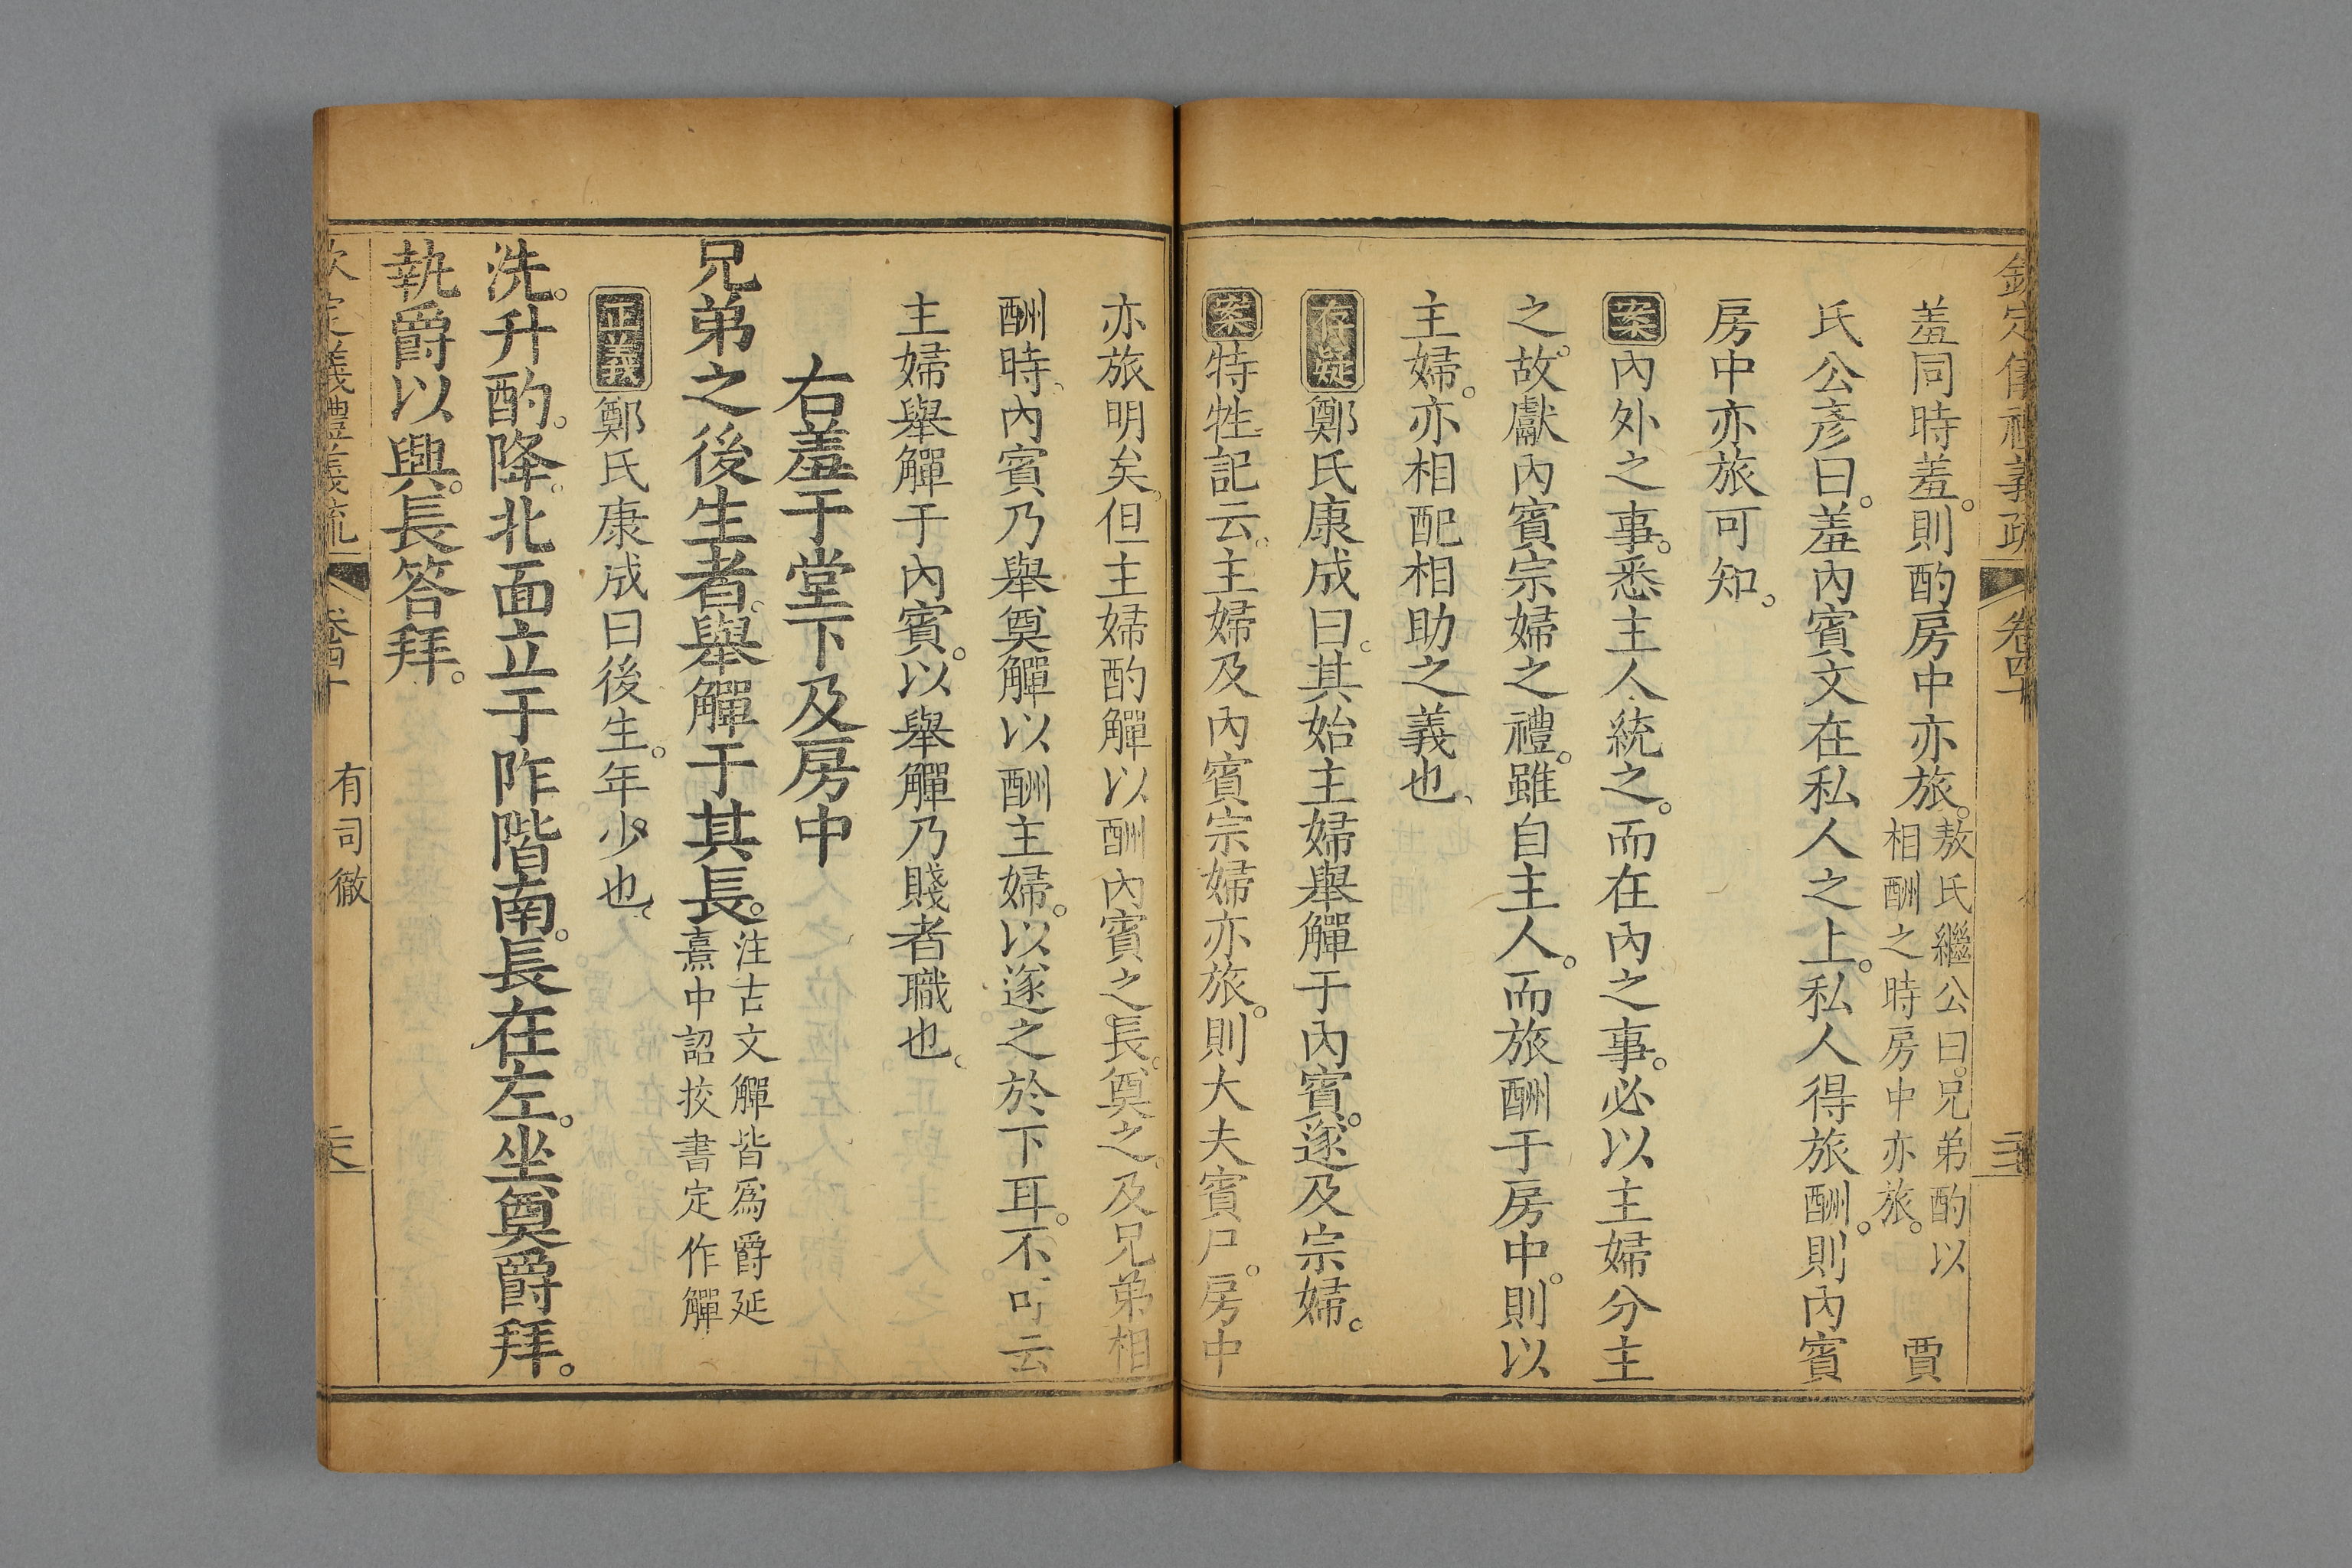 欽定儀禮義疏 卷四十
羞同時羞。則酌房中亦旅。敖氏繼公曰。兄弟酌以相酬之時房中亦旅。 賈
氏公彥曰。羞內賓文在私人之上。私人得旅酬。則內賓
房中亦旅可知。
案內外之事。悉主人統之。而在內之事。必以主婦分主
之。故獻內賓宗婦之禮。雖自主人。而旅酬于房中。則以
主婦。亦相配相助之義也。
存疑鄭氏康成曰。其始主婦舉觶于內賓。遂及宗婦。
案特牲記云。主婦及內賓宗婦亦旅。則大夫賓尸。房中
亦旅明矣。但主婦酌觶以酬內賓之長。奠之。及兄弟相
酬時、內賓乃舉奠觶以酬主婦。以遂之於下耳。不可云
主婦舉觶于內賓。以舉觶乃賤者職也。
右羞于堂下及房中
兄弟之後生者。舉觶于其長。注古文觶皆爲爵延熹中詔挍書定作觶
正義鄭氏康成曰後生。年少也。
洗。升酌。降。北面立于阼階南。長在左。坐奠爵拜。
執爵以興。長答拜。
欽定義禮義疏 卷四十 有司徹